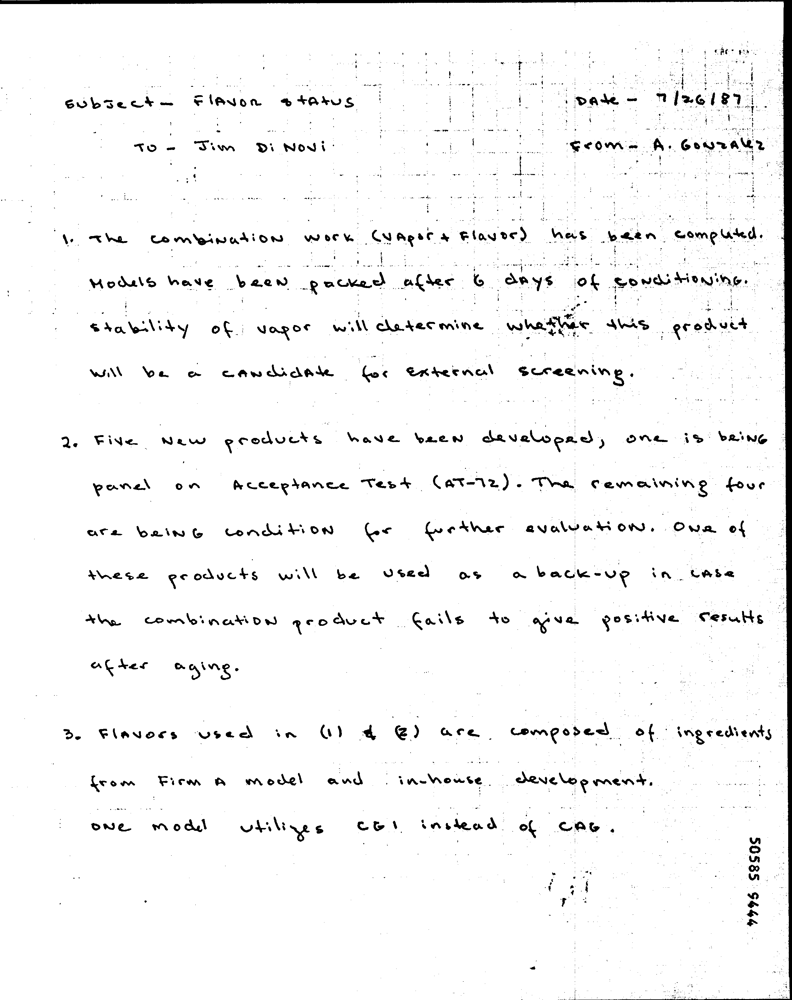 Subject - Flavor status Date - 7/26/87
To - Jim Di Novi From - A. Gonzalez
1. The combination work (vapor + Flavor) has been completed.
Models have been packed after 6 days of conditioning.
Stability of vapor will determine whether this product
will be a candidate for external screening.
2. Five New products have been developed, one is being
panel on Acceptance Test (AT-72). The remaining four
are being condition for further evaluation. One of
these products will be used as a back-up in case
the combination product fails to give positive results
after aging.
3. Flavors used in (1) & (2) are composed of ingredients
from Firm A model and in-house development.
One model utilizes CG1 instead of CAG.
50585 9444